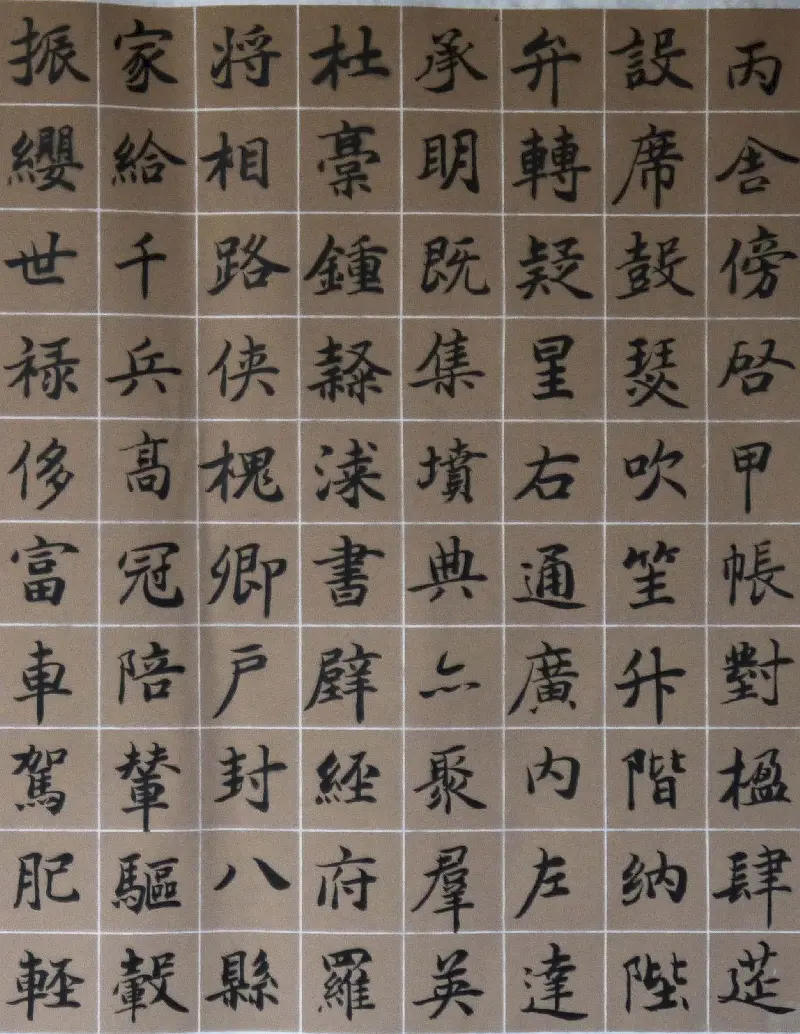 丙舍傍啓甲帳對楹肆筵
設席鼓瑟吹笙升階納陛
弁轉疑星右通廣內左達
承明既集墳典亦聚羣英
杜稾鍾隸漆書壁經府羅
将相路俠槐卿戶封八縣
家給千兵高冠陪輦驅轂
振纓世禄侈富車駕肥輕